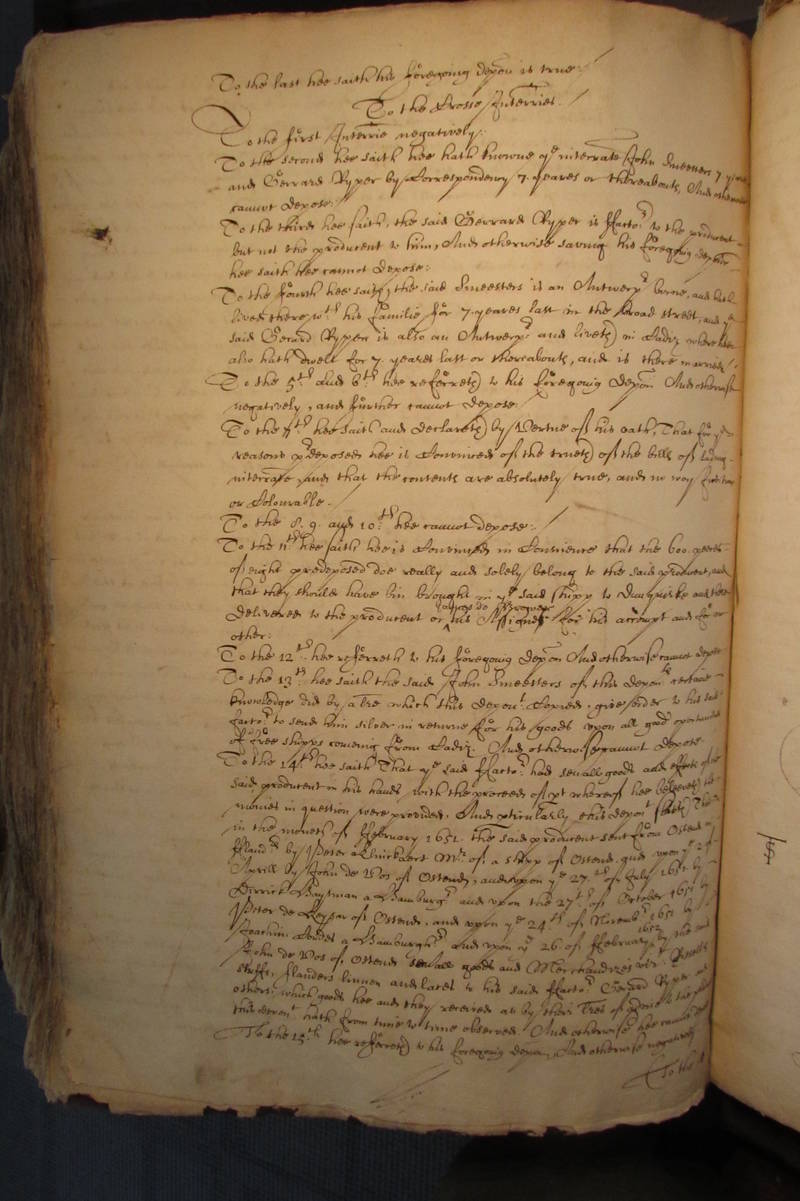 To the last hee saith his foregoing depon is true
To the Crosse Interries.
To the first Interrie negatively.
To the second hee saith hee hath knowne ye interrate John Smeesters 7 yeares
and Gerrard Ryper by Correspondency 7. yeares or thereabouts, And otherwise
cannot depose.
To the third hee saith, the said Gerrard Ryper is ffactor to the producent
but not the producent to him, And otherwise saving his foregoing depon
hee saith hee cannot depose:
To the fourth hee saith, the said Smeesters is an Antwerpr borne, and hath
lived there wth his familie for 7. yeares last in the broad street, and ye
said Gerard Ryper is also an Antwerpr and liveth in Cadiz where hee
also hath dwelt for 7. yeares last or thereabouts, and is there married
To the 5th And 6th hee referreth to his foregoing depon And otherwise
negatively, and further cannot depose.
To the 7th hee saith and declareth by vertue of his oath, That for ye
reasons pdeposed hee is Convinced of the trueth of the bills of lading
interrate, and that the contents are absolutely true, and no way
or Colourable.
To the 8. 9. and 10th hee cannot depose.
To the 11th hee saith hee is Convinced in Conscience that the 600. peeces
of eight predeposed doe really and solely belong to the said producent, and
that they should have bin brought in ye said shipp to Dunquirke and there
delivered to the producent or his Assignes for his accompt and for
other:
To the 12th hee referreth to his foregoing depon And otherwise cannot depose
To the 13th hee saith the said John Smeesters of this deponts certaine
knowledge did by a tre which this deponent Copied, give order to his said
factor to send him silver in returne for his goods upon all good oportunities
of free shipps coming from Cadiz. And otherwise cannot depose
To the 14th hee saith That ye said ffactor had severall goods and effects of the
said producent in his hands with the proceeds of whereof hee beleeveth the
monies in question were provided. And pticularly this depont saith That
in the moneth of ffebruary 1651. the said producent sent from Ostend in
ffland by Peter Mr of a shipp of Ostend, and upon ye
Aprill by John de Vos of Ostend, and upon ye 27th of July 1651 by
Dirrick a Hamburgr and upon the 27th of October 1651 by
Peter de Keysar of Ostend, and upon ye 24th of Novembr 1651 by
Joachim a Hamburghr And upon ye 26 of ffebruary 1652 by the said
John de Vos of Ostend severall goods and Merchandizes
stuffs, flanders linnen and laces to his said ffactor Gerard Ryper and
others, which goods hee and they received as by their tres of to the
this hath from time to time observed And otherwise hee cannot
To the 15th hee referreth to his foregoing depon, And otherwise negatively
To the